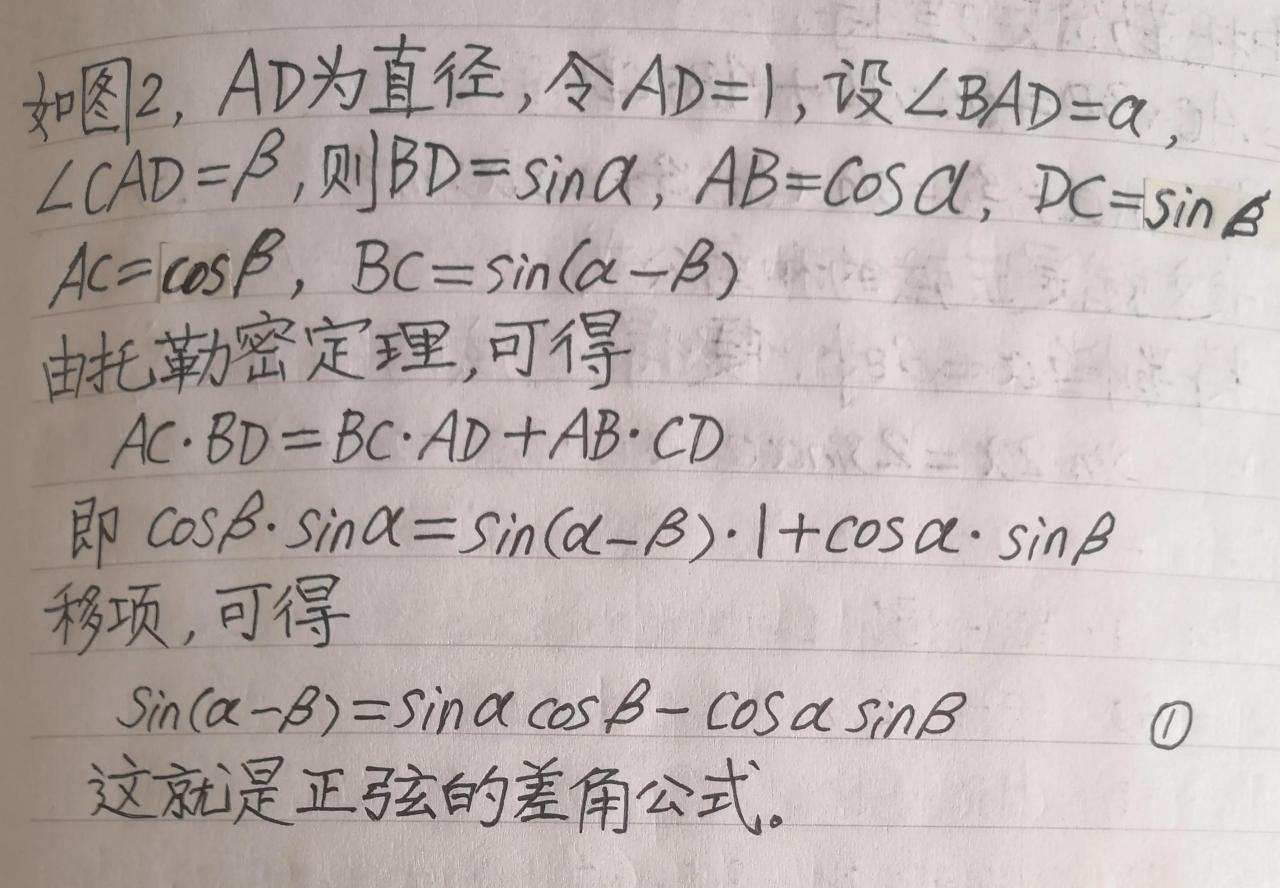 如图2, AD为直径,令AD=1,设∠BAD=α,
∠CAD=β,则BD=sinα, AB=cosα, DC=sinβ
AC=cosβ, BC=sin(α-β)
由托勒密定理,可得
AC·BD=BC·AD+AB·CD
即 cosβ·sinα=sin(α-β)·1+cosα·sinβ
移项,可得
sin(α-β)=sinα cosβ-cosα sinβ ①
这就是正弦的差角公式。